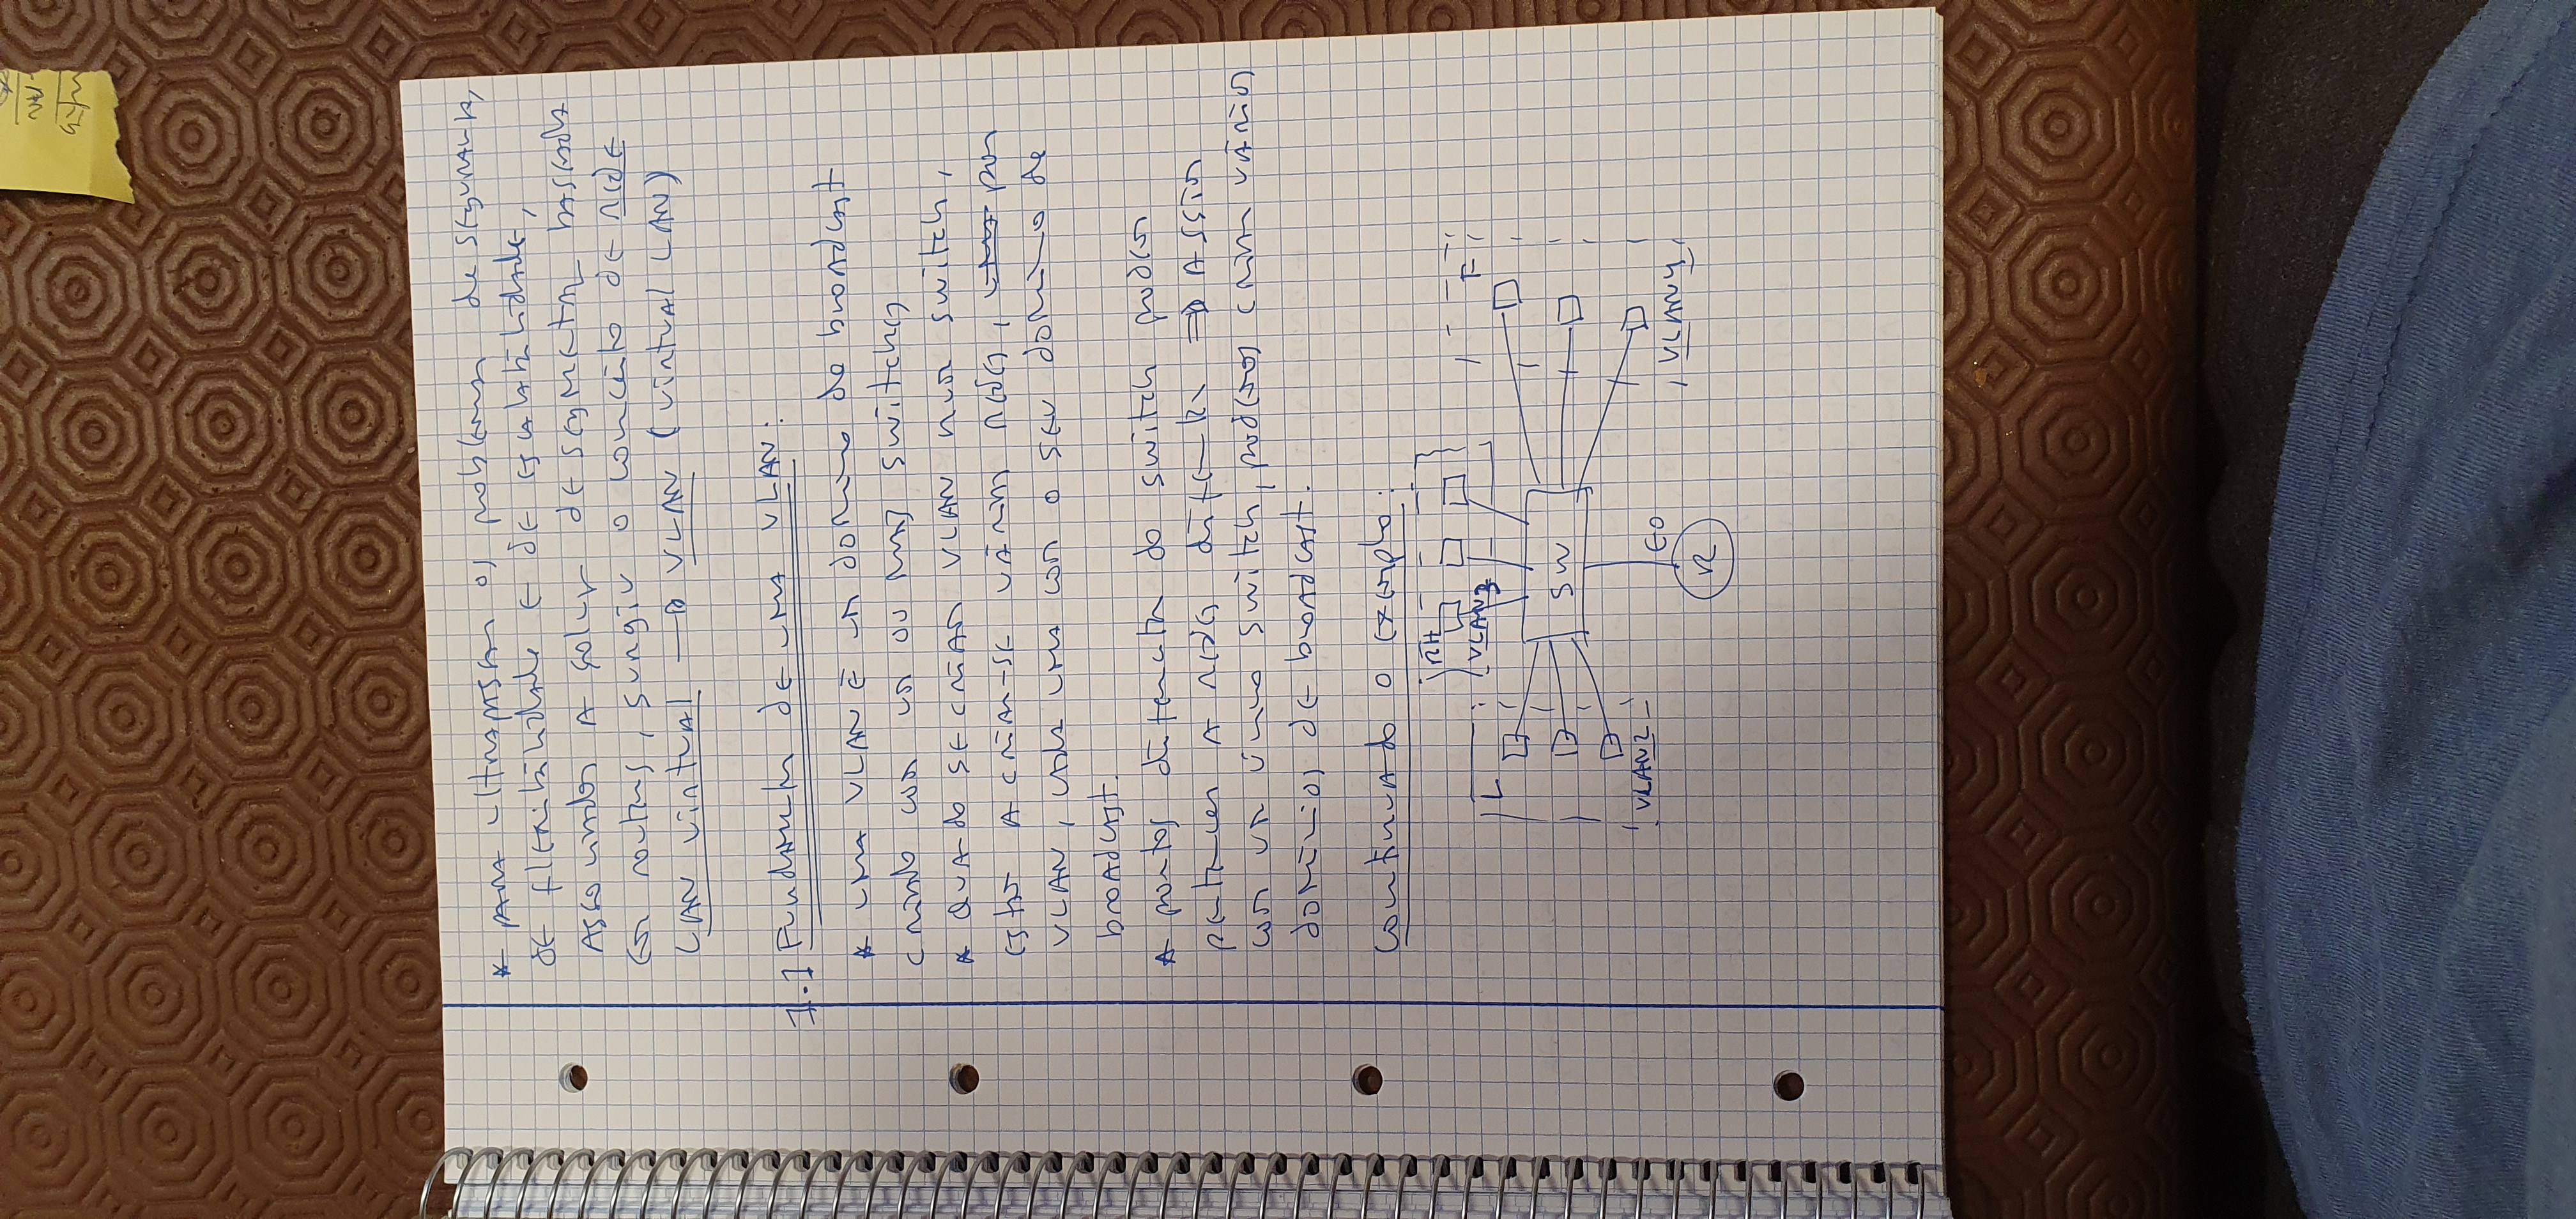 * PARA ultrapassar os problemas de segurança,
de flexibilidade e de escalabilidade,
Associados A solução de segmentação baseada
em routers, surgiu o conceito de rede
LAN virtual → VLAN (virtual LAN)
7.1 Fundamentos de uma VLAN:
* uma VLAN é um domínio de broadcast
criado com um ou mais switches
* Quando se criam VLAN num switch,
estão A criar-se várias redes, uma por
VLAN, cada uma com o seu domínio de
broadcast.
* portos diferentes do switch podem
pertencer A redes diferentes ⇒ Assim
com um único switch, podemos criar vários
domínios de broadcast.
Continuando o exemplo:
RH
VLAN3
L
F
SW
VLAN2
E0
VLAN4
R